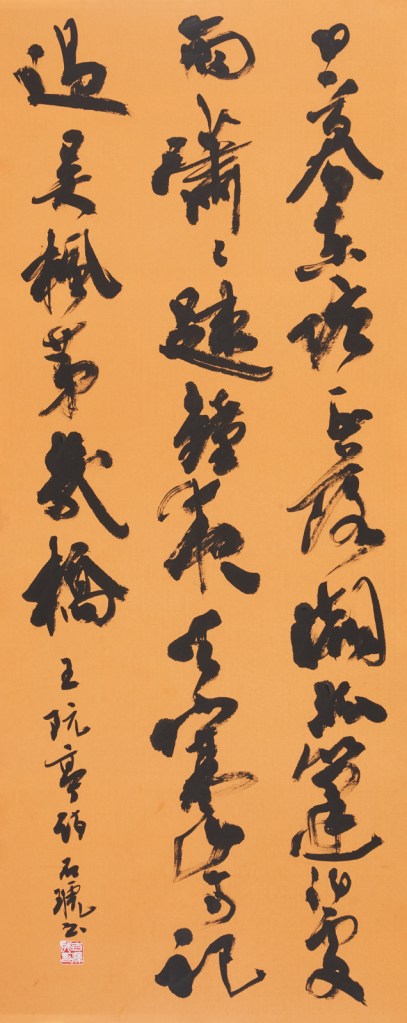 日暮東塘正落潮孤篷泊處
雨瀟〻疎鐘夜火寒山寺記
過吴楓第幾橋
王阮亭詩 石 书